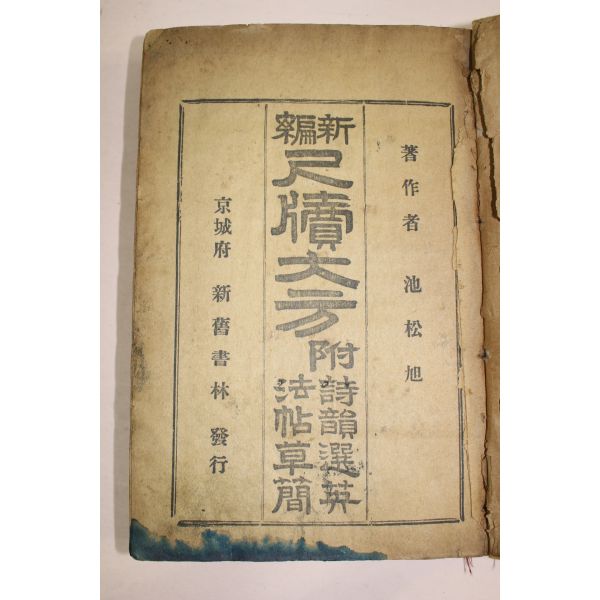 著作者 池松旭
新編
尺牘大方
附
詩韻選英
法帖草簡
京城府 新舊書林 發行